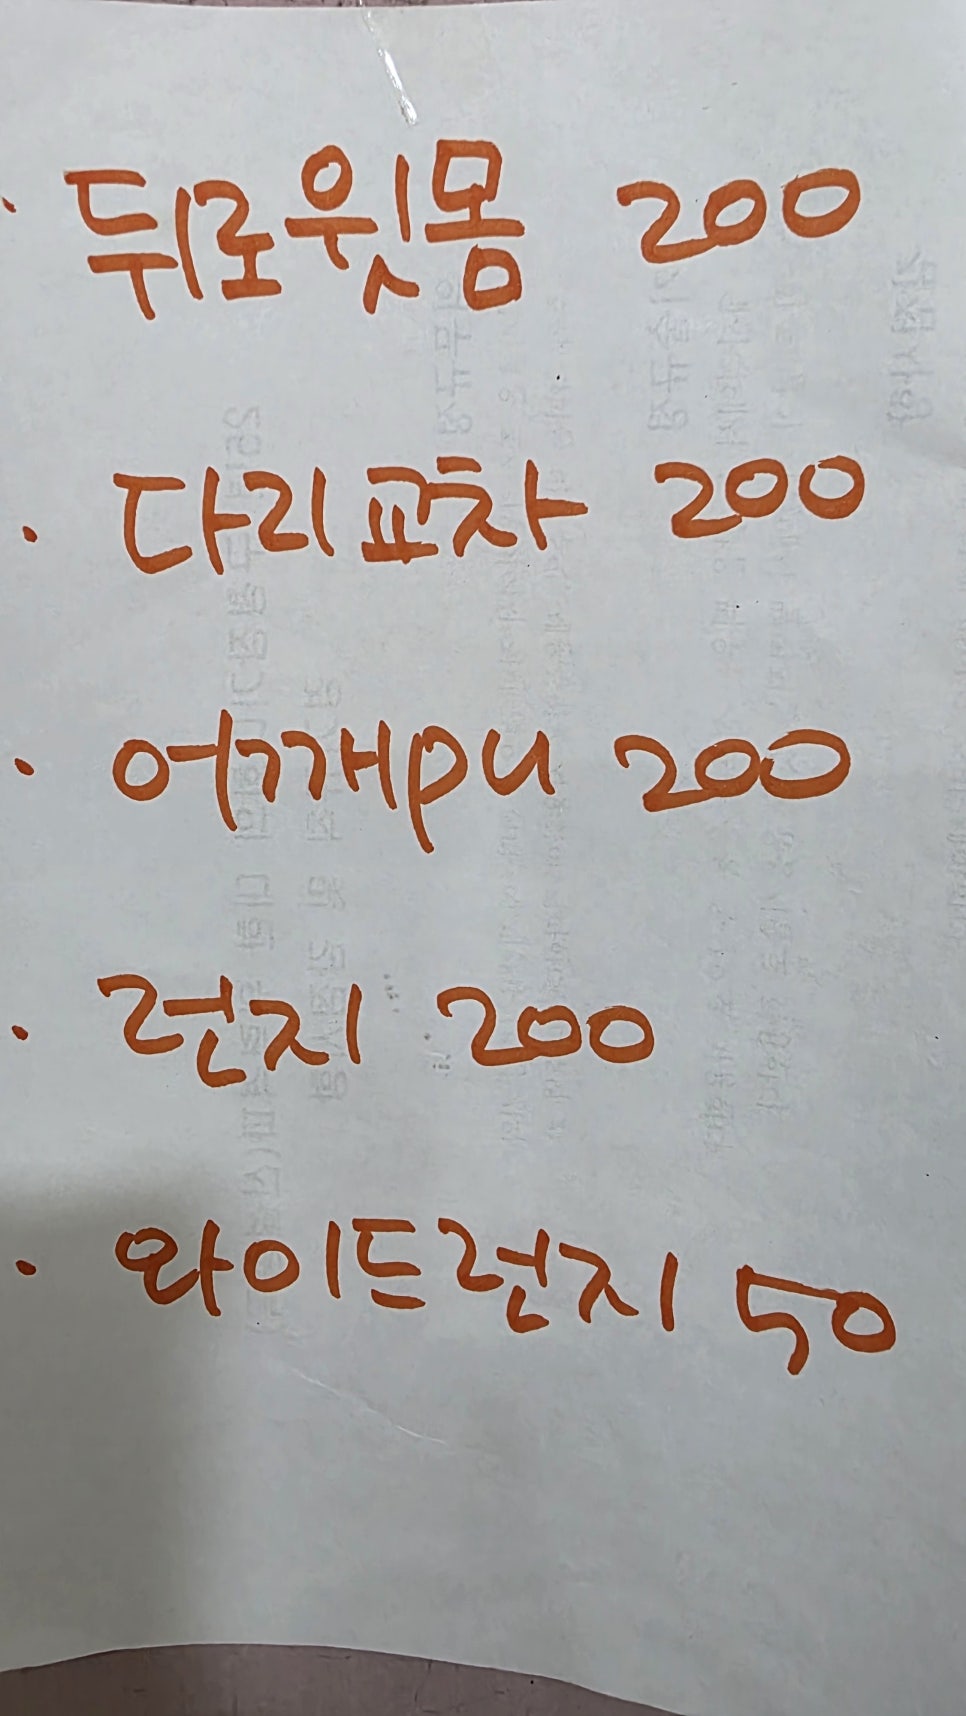 · 뒤로윗몸 200
· 다리교차 200
· 어깨pu 200
· 런지 200
· 와이드런지 50